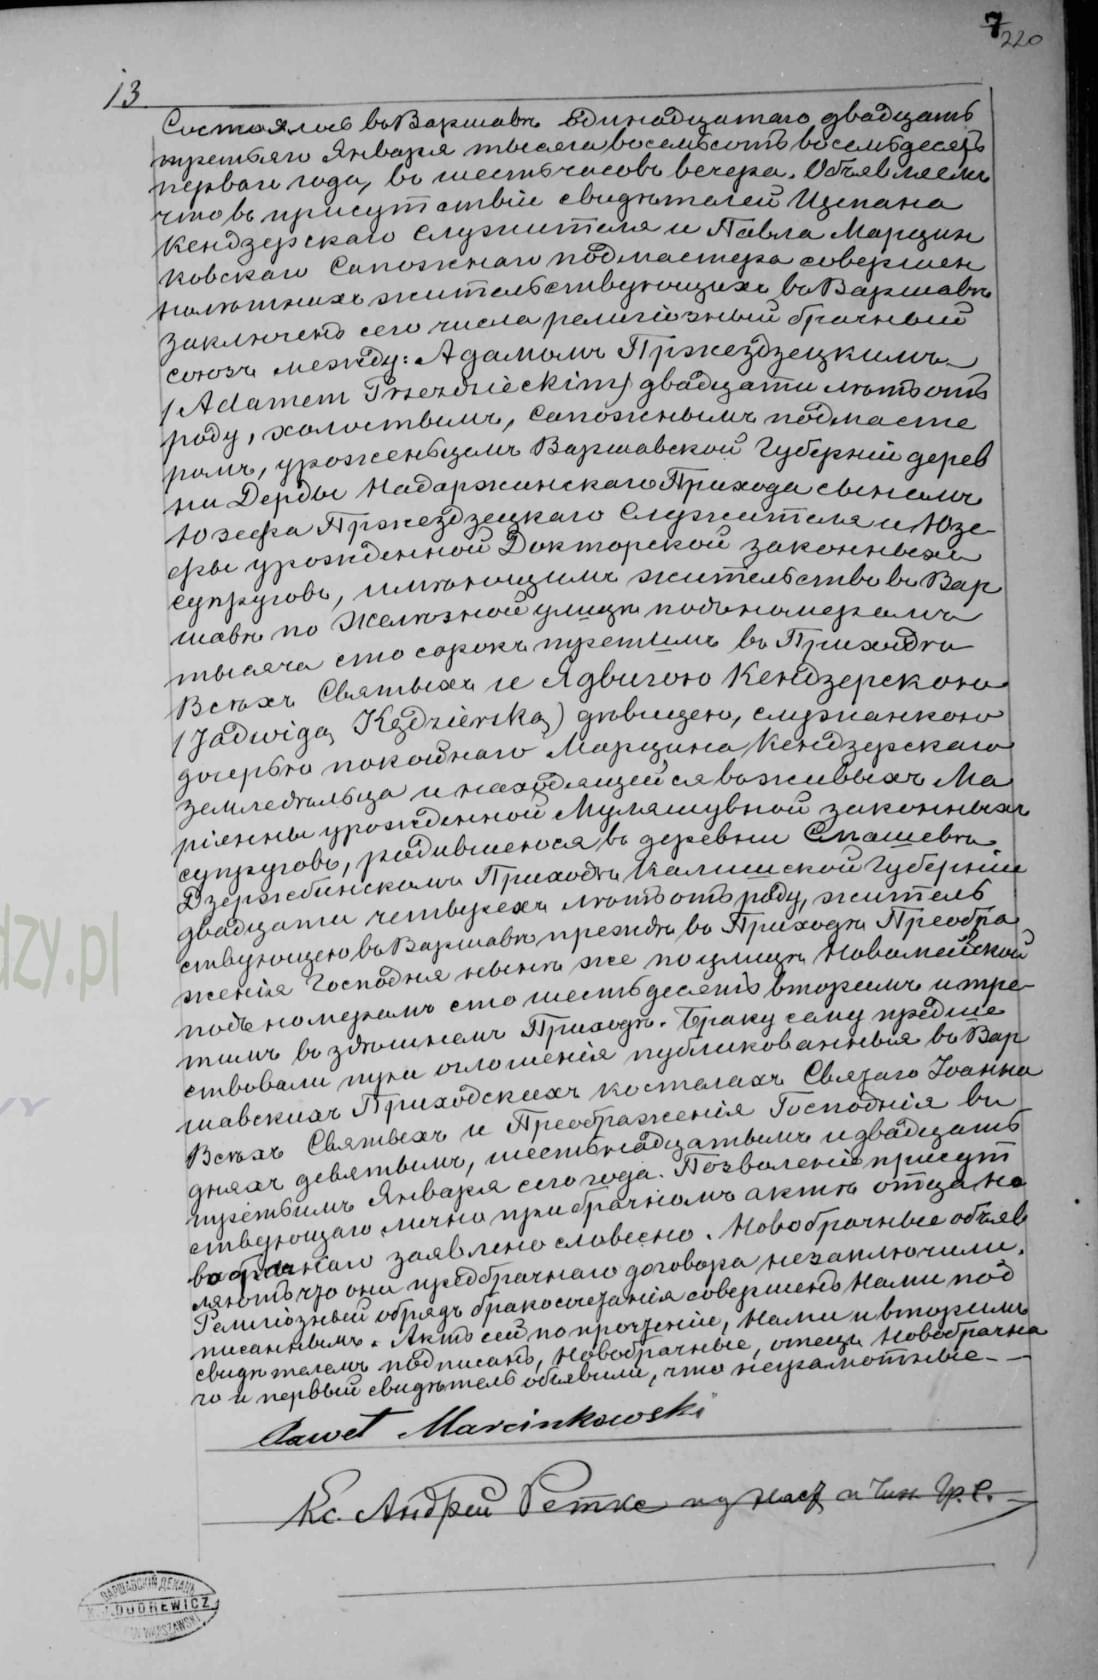 7
220
13
Состоялось въ Варшавѣ одинадцатаго двадцать
третьяго Января тысяча восемьсотъ восемьдесятъ
перваго года, въ шесть часовъ вечера. Объявляемъ
что въ присутствіи свидѣтелей Щепана
Кендзерскаго служителя и Павла Марцин
ковскаго сапожнаго подмастера совершен
нолѣтнихъ жительствующихъ въ Варшавѣ
заключенъ сего числа религіозный брачный
союзъ между: Адамомъ Пржездзецкимъ
(Adamem Przezdzieckim) двадцати лѣтъ отъ
роду, холостымъ, сапожнымъ подмасте
ромъ, уроженьцемъ Варшавской Губерніи дерев
ни Дерды Надаржинскаго Прихода сыномъ
Юзефа Пржездзецкаго служителя и Юзе-
фы урожденной Докторской законныхъ
супруговъ, имѣющимъ жительство въ Вар
шавѣ по Желѣзной улицѣ подъ номеромъ
тысяча сто сорокъ третимъ въ Приходѣ
Всѣхъ Святыхъ и Ядвигою Кендзерскою
(Jadwigą Kędzierską) дѣвицею, служанкою
дочерью покойнаго Марцина Кендзерскаго
земледѣльца и находящейся въ живыхъ Ма
ріянны урожденной законныхъ
супруговъ, родившеюся въ деревни
Дзержбинскомъ Приходѣ Калишской Губерніи
двадцати четырехъ лѣтъ отъ роду, житель
ствующею въ Варшавѣ прежде въ Приходѣ Преобра
женія Господня нынѣ же по улицѣ Новомейской
подъ номеромъ сто шестьдесятъ вторымъ и тре-
тимъ въ здѣшнемъ Приходѣ. Браку сему предше
ствовали три оглошенія публикованныя въ Вар
шавскихъ Приходскихъ костелахъ Святаго Іоанна
Всѣхъ Святыхъ и Преображенія Господнія въ
дняхъ девятымъ, шестьнадцатымъ и двадцать
третьимъ Января сего года. Позволеніе присут
ствующаго лично при брачномъ актѣ отца но
вобрачнаго заявлено словесно. Новобрачные объяв
ляютъ что они предбрачнаго договора незаключили.
Религіозный обрядъ бракосочетанія совершенъ нами под
писаннымъ. Актъ сей по прочтеніи, Нами и вторымъ
свидѣтелемъ подписанъ, Новобрачные, отецъ Новобрачна
го и первый свидѣтель объявили, что неграмотные. —
Paweł Marcinkowski
Кс. Андрей Ретке Чин. Гр. С.
ВАРШАВСКІЙ ДЕКАНЪ
dzy.pl